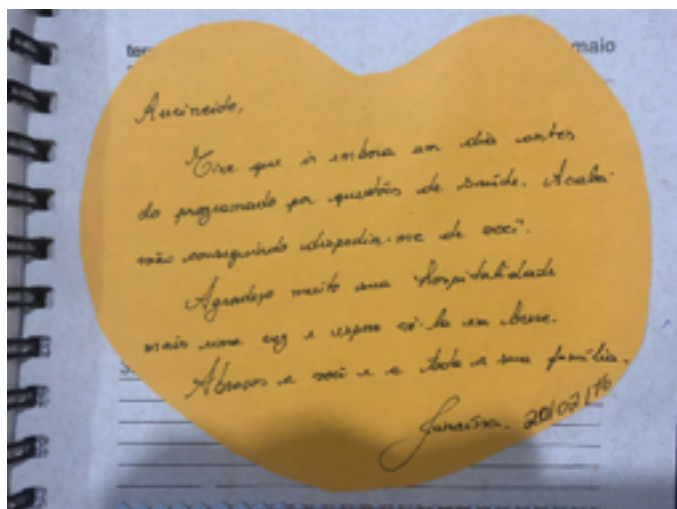 ter
maio
Aurineide,
Tive que ir embora um dia antes
do programado por questões de saúde. Acaba
não conseguindo despedir-me de você.
Agradeço muito sua hospitalidade
mais uma vez e espero vê-la em breve.
Abraços a você e a toda a sua família.
20/02/16